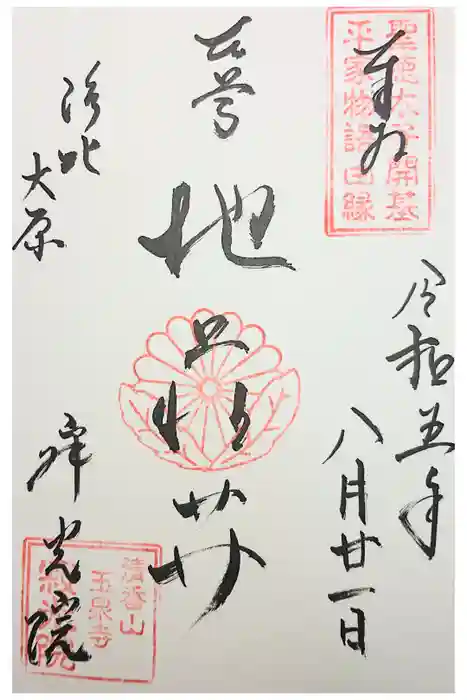 奉拝
聖徳太子開基
平家物語由縁
令和五年
八月廿一日
本尊
地蔵
洛北
大原
寂光院
清香山
玉泉寺
寂光院